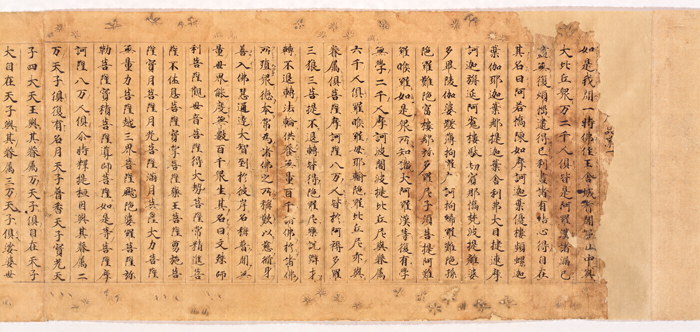 如是我聞一時佛住王舍城耆闍崛山中與
大比丘眾万二千人俱皆是阿羅漢諸漏已
盡無復煩惱逮得己利盡諸有結心得自在
其名曰阿若憍陳如摩訶迦葉優樓頻螺迦
葉伽耶迦葉那提迦葉舍利弗大目揵連摩
訶迦旃延阿㝹樓馱劫賓那憍梵波提離婆
多畢陵伽婆蹉薄拘羅摩訶拘絺羅難陀孫
陀羅難陀富樓那彌多羅尼子須菩提阿難
羅睺羅如是眾所知識大阿羅漢等復有學
無學二千人摩訶波闍波提比丘尼與眷屬
六千人俱羅睺羅母耶輸陀羅比丘尼亦與
眷屬俱菩薩摩訶薩八万人皆於阿耨多羅
三藐三菩提不退轉皆得陀羅尼樂說辯才
轉不退轉法輪供養無量百千諸佛於諸佛
所殖眾德本常為諸佛之所稱歎以慈脩身
善入佛慧通達大智到於彼岸名稱普聞無
量世界能度無數百千眾生其名曰文殊師
利菩薩觀世音菩薩得大勢菩薩常精進菩
薩不休息菩薩寶掌菩薩藥王菩薩勇施菩
薩寶月菩薩月光菩薩滿月菩薩大力菩薩
無量力菩薩越三界菩薩颰陀婆羅菩薩彌
勒菩薩寶積菩薩導師菩薩如是等菩薩摩
訶薩八万人俱尒時釋提桓因與其眷屬二
万天子俱復有名月天子普香天子寶光天
子四大天王與其眷屬万天子俱自在天子
大自在天子與其眷屬三万天子俱娑婆世